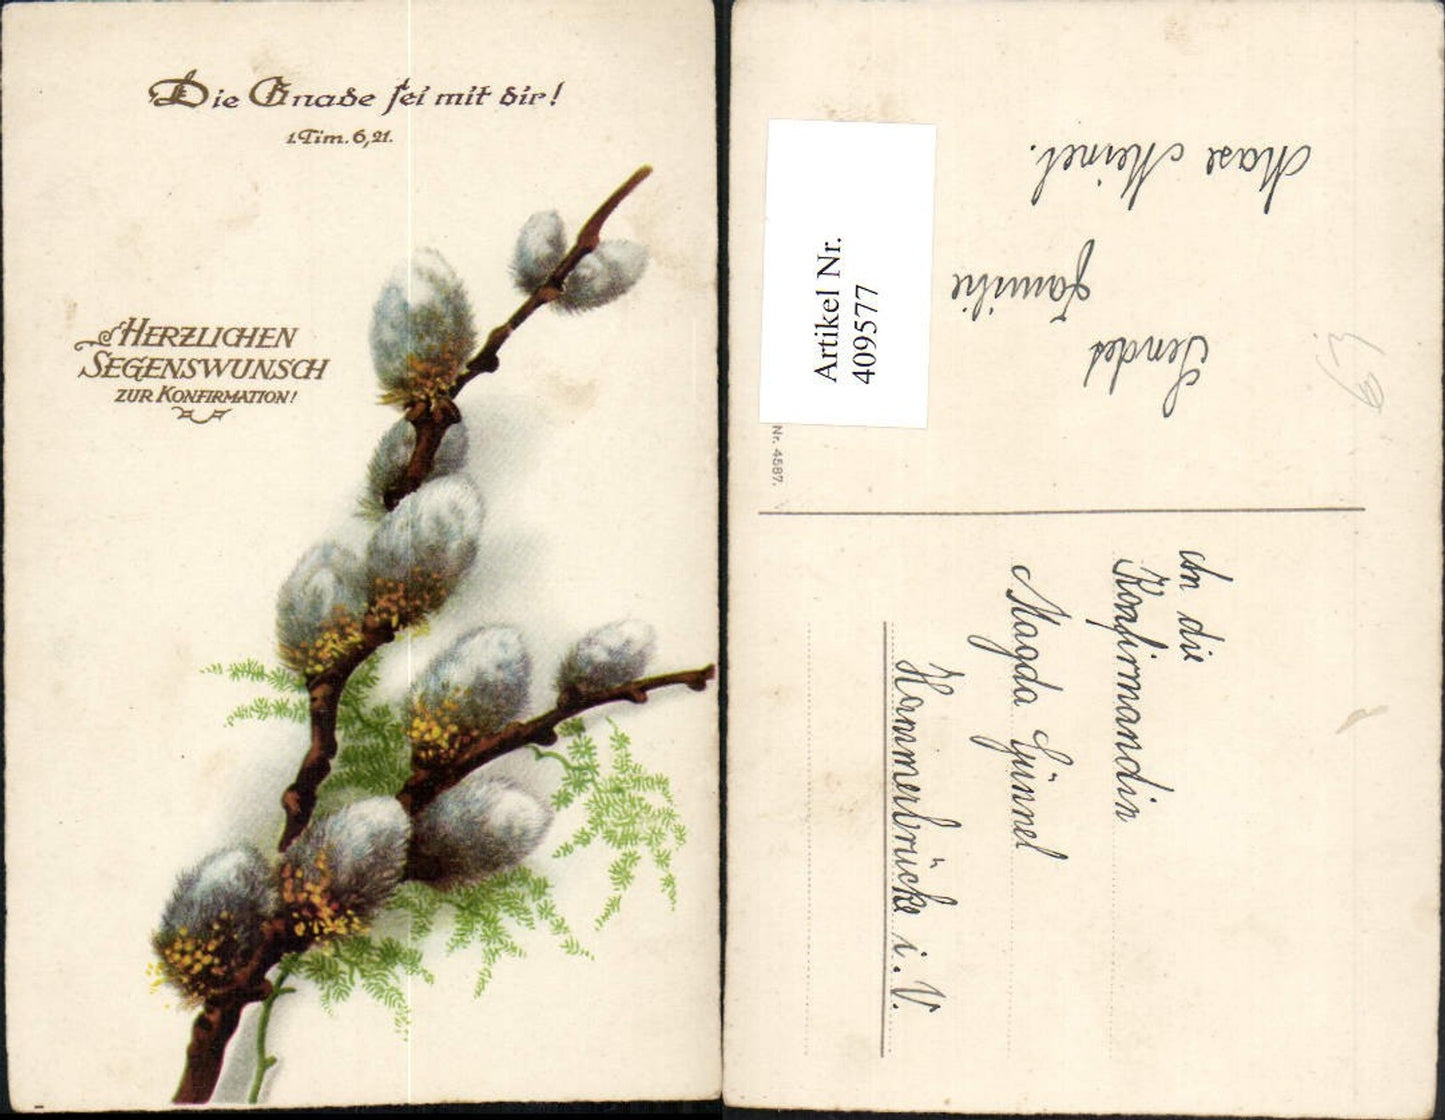 Die Gnade sei mit dir!
1. Tim. 6, 21.
HERZLICHEN
SEGENSWUNSCH
ZUR KONFIRMATION!
Artikel Nr.
409577
Nr. 4587.
Sendet
Familie
Meinel.
An die
Konfirmandin
Magda Günnel
Hammerbrücke i. V.